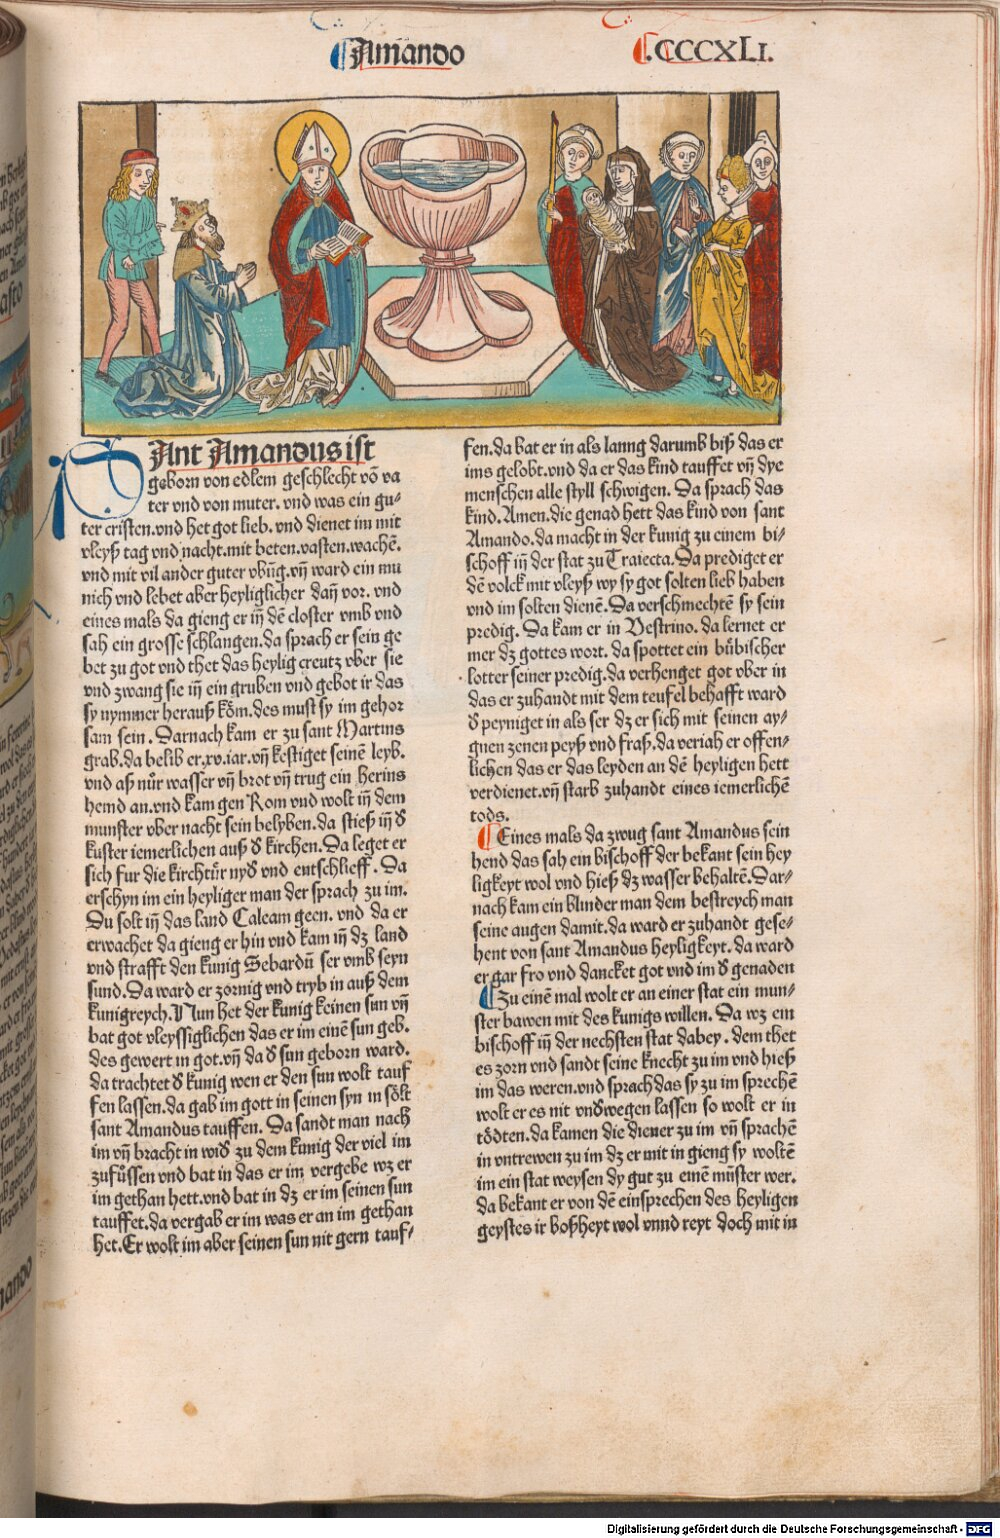 Amando
.CCCXLI.
SAnt Amandus ist
geborn von edlem geschlecht võ va
ter vnd von muter. vnd was ein gu⸗
ter cristen.vnd het got lieb. vnd dienet im mit
vleyß tag vnd nacht.mit beten.vasten.wachẽ.
vnd mit vil ander guter vbũg.vñ ward ein mu
nich vnd lebet aber heyliglicher dañ vor. vnd
eines mals da gieng er iñ dẽ closter vmb vnd
sah ein grosse schlangen.da sprach er sein ge
bet zu got vnd thet das heylig creutz vber sie
vnd zwang sie iñ ein gruben vnd gebot ir das
sy nymmer herauß kõm.des must sy im gehor
sam sein. Darnach kam er zu sant Martins
grab.da belib er.xv.iar.vñ kestiget seinẽ leyb.
vnd aß nůr wasser vñ brot vñ trug ein herins
hemd an.vnd kam gen Rom vnd wolt iñ dem
munster vber nacht sein belyben.da stieß iñ d̕
kuster iemerlichen auß d̕ kirchen. Da leget er
sich fur die kirchtůr nyd̕ vnd entschlieff. Da
erschyn im ein heyliger man der sprach zu im.
Du solt iñ das land Calcam geen. vnd da er
erwachet da gieng er hin vnd kam iñ dz land
vnd strafft den kunig Sebardũ ser vmb seyn
sund.Da ward er zornig vnd tryb in auß dem
kunigreych.Nun het der kunig keinen sun vñ
bat got vleyssiglichen das er im einẽ sun geb.
des gewert in got.vñ da d̕ sun geborn ward.
da trachtet d̕ kunig wen er den sun wolt tauf
fen lassen.da gab im gott in seinen syn in sölt
sant Amandus tauffen. Da sandt man nach
im vñ bracht in wid̕ zu dem kunig der viel im
zufůssen vnd bat in das er im vergebe wz er
im gethan hett.vnd bat in dz er im seinen sun
tauffet.da vergab er im was er an im gethan
het.Er wolt im aber seinen sun nit gern tauf⸗
fen.da bat er in als lanng darumb biß das er
ims gelobt.vnd da er das kind tauffet vñ dye
menschen alle styll schwigen. Da sprach das
kind. Amen.die genad hett das kind von sant
Amando.da macht in der kunig zu einem bi⸗
schoff iñ der stat zu Traiecta.Da prediget er
dẽ volck mit vleyß wy sy got solten lieb haben
vnd im solten dienẽ.Da verschmechtẽ sy sein
predig. Da kam er in Vestrino. da lernet er
mer dz gottes wort. da spottet ein bůbischer
lotter seiner predig.da verhenget got vber in
das er zuhandt mit dem teufel behafft ward
d̕ peyniget in als ser dz er sich mit seinen ay⸗
gnen zenen peyß vnd fraß.da veriah er offen⸗
lichen das er das leyden an dẽ heyligen hett
verdienet.vñ starb zuhandt eines iemerlichẽ
tods.
Eines mals da zwug sant Amandus sein
hend das sah ein bischoff der bekant sein hey
ligkeyt wol vnd hieß dz wasser behaltẽ.Dar⸗
nach kam ein blinder man dem bestreych man
seine augen damit.da ward er zuhandt gese⸗
hent von sant Amandus heyligkeyt.da ward
er gar fro vnd dancket got vnd im d̕ genaden
Zu einẽ mal wolt er an einer stat ein mun⸗
ster bawen mit des kunigs willen. Da wz ein
bischoff iñ der nechsten stat dabey. dem thet
es zorn vnd sandt seine knecht zu im vnd hieß
im das weren.vnd sprach das sy zu im sprechẽ
wolt er es nit vnd̕wegen lassen so wolt er in
tödten.da kamen die diener zu im vñ sprachẽ
in vntrewen zu im dz er mit in gieng sy woltẽ
im ein stat weysen dy gut zu einẽ můster wer.
da bekant er von dẽ einsprechen des heyligen
geystes ir boßheyt wol vnnd reyt doch mit in
Digitalisierung gefördert durch die Deutsche Forschungsgemeinschaft - DFG